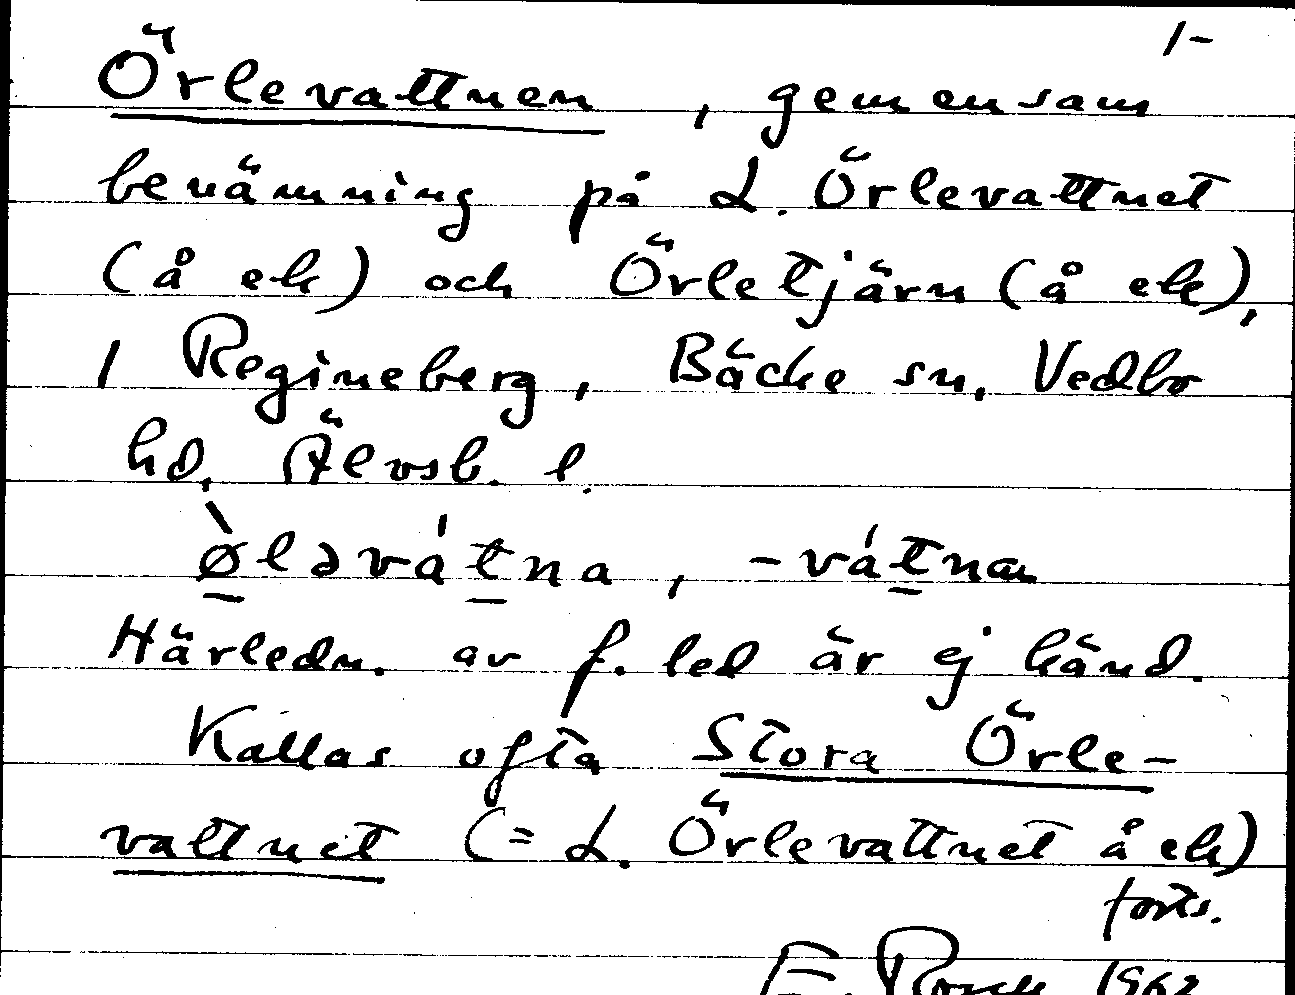 1-
Örlevattnen, gemensam
benämning på L. Örlevattnet
(å ek) och Örletjärn (å ek),
1 Regineberg, Bäcke sn, Vedbo
hd, Älvsb. l.
ø̀ləvátna, -vátnan
Härledn. av f. led är ej känd.
Kallas ofta Stora Örle-
vattnet (= L. Örlevattnet å ek)
forts.
1962